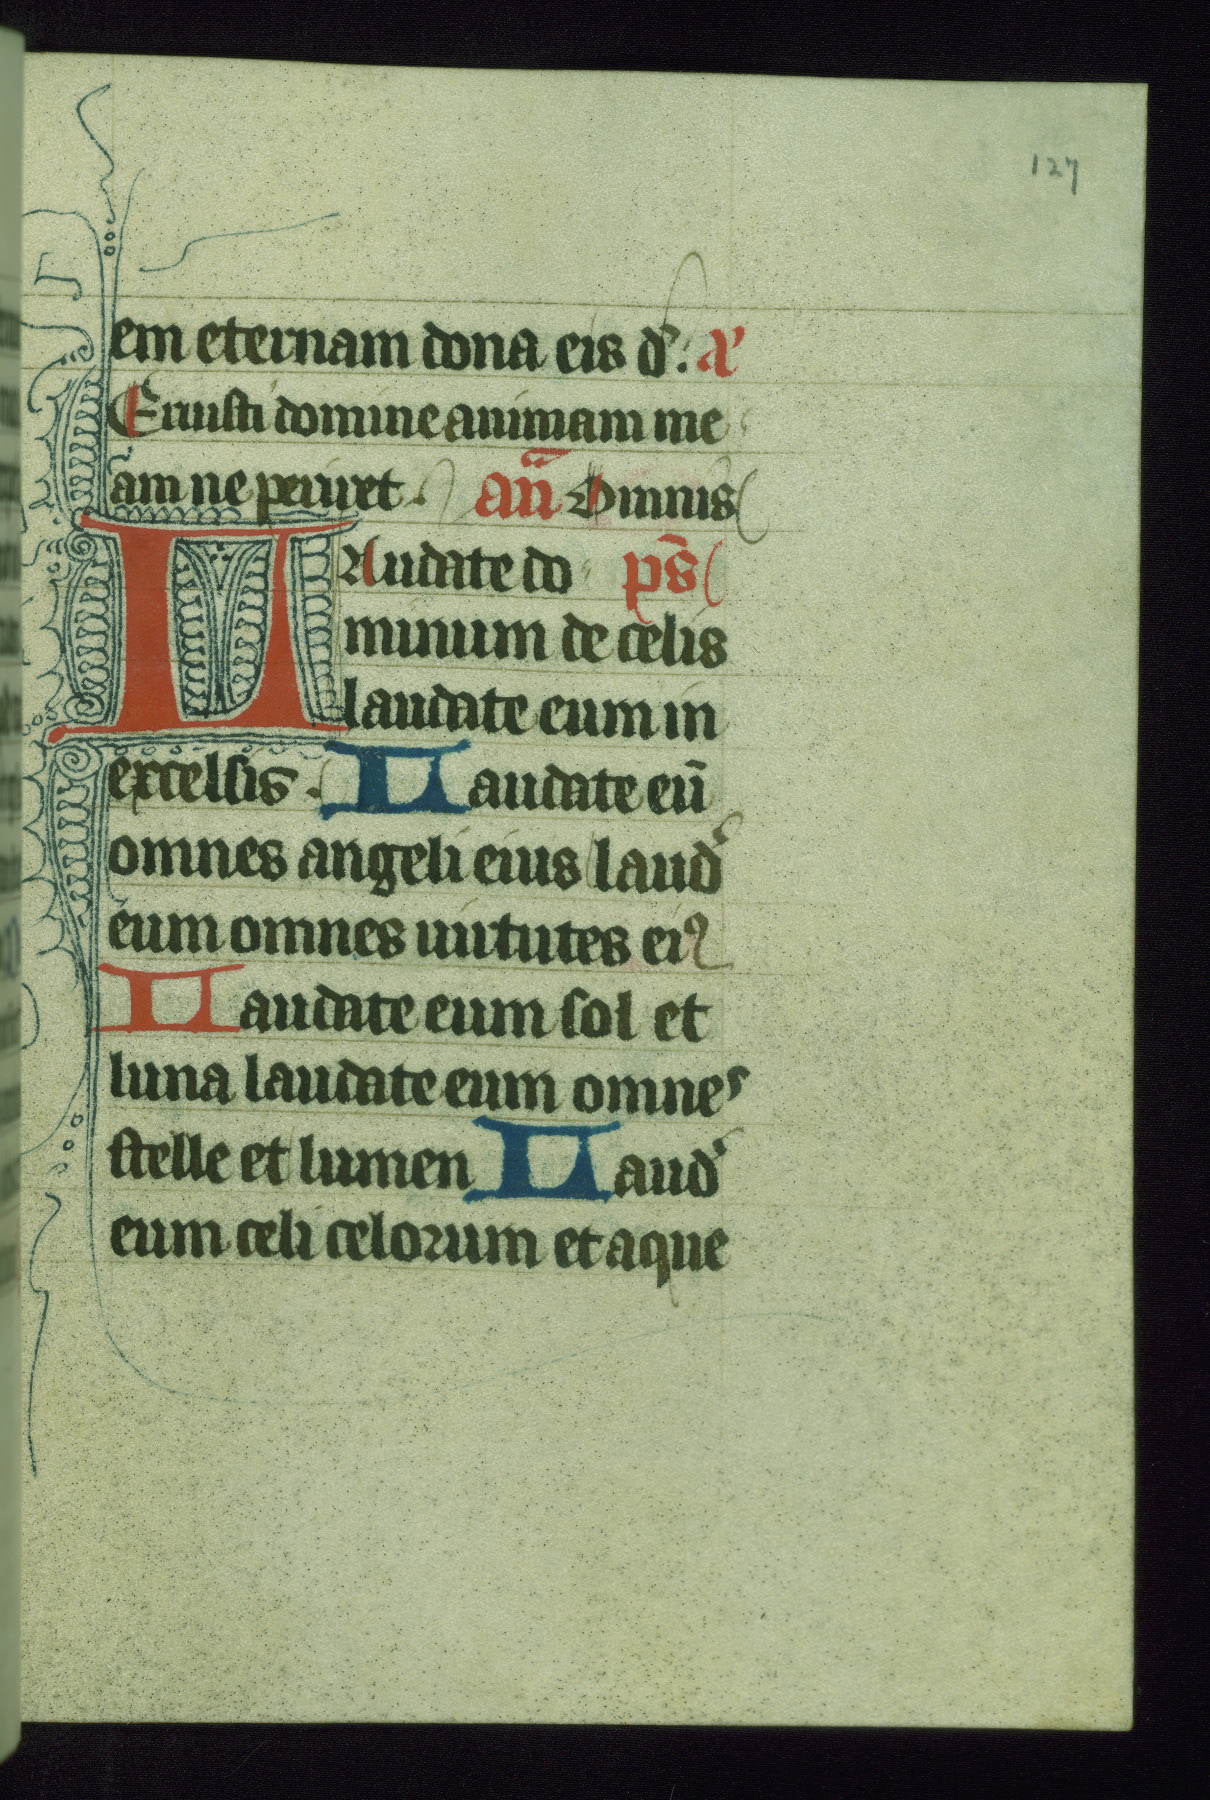 127
em eternam dona eis d̾. a̾
Eruisti domine animam me
am ne periret. an̄ Omnis
LAudate do p̄s
minum de celis
laudate eum in
excelsis. Laudate eū
omnes angeli eius laud̾
eum omnes uirtutes eiꝰ
Laudate eum sol et
luna laudate eum omnes
stelle et lumen Laud̾
eum celi celorum et aque